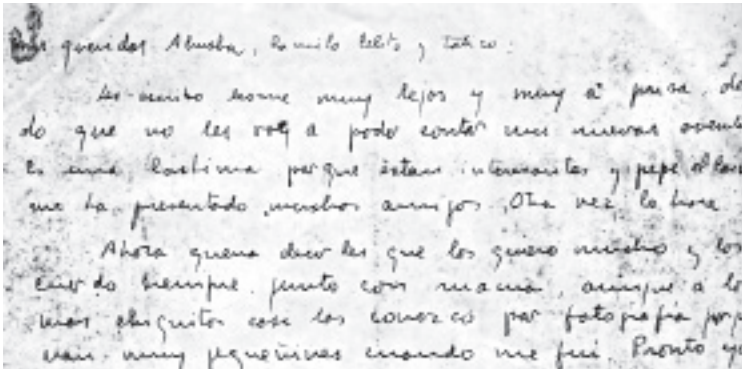 mis queridos Aliusha, Camilo, Celita y Tatico:
Les escribo desde muy lejos y muy a prisa, de
do que no les voy a poder contar mis nuevas aventu
Es una lástima porque están interesantes y Pepe el
me ha presentado muchos amigos. Otra vez lo haré.
Ahora quería decirles que los quiero mucho y los
cuerdo siempre, junto con mamá, aunque a los
más chiquitos casi los conozco por fotografía porq
eran muy pequeñines cuando me fui. Pronto yo